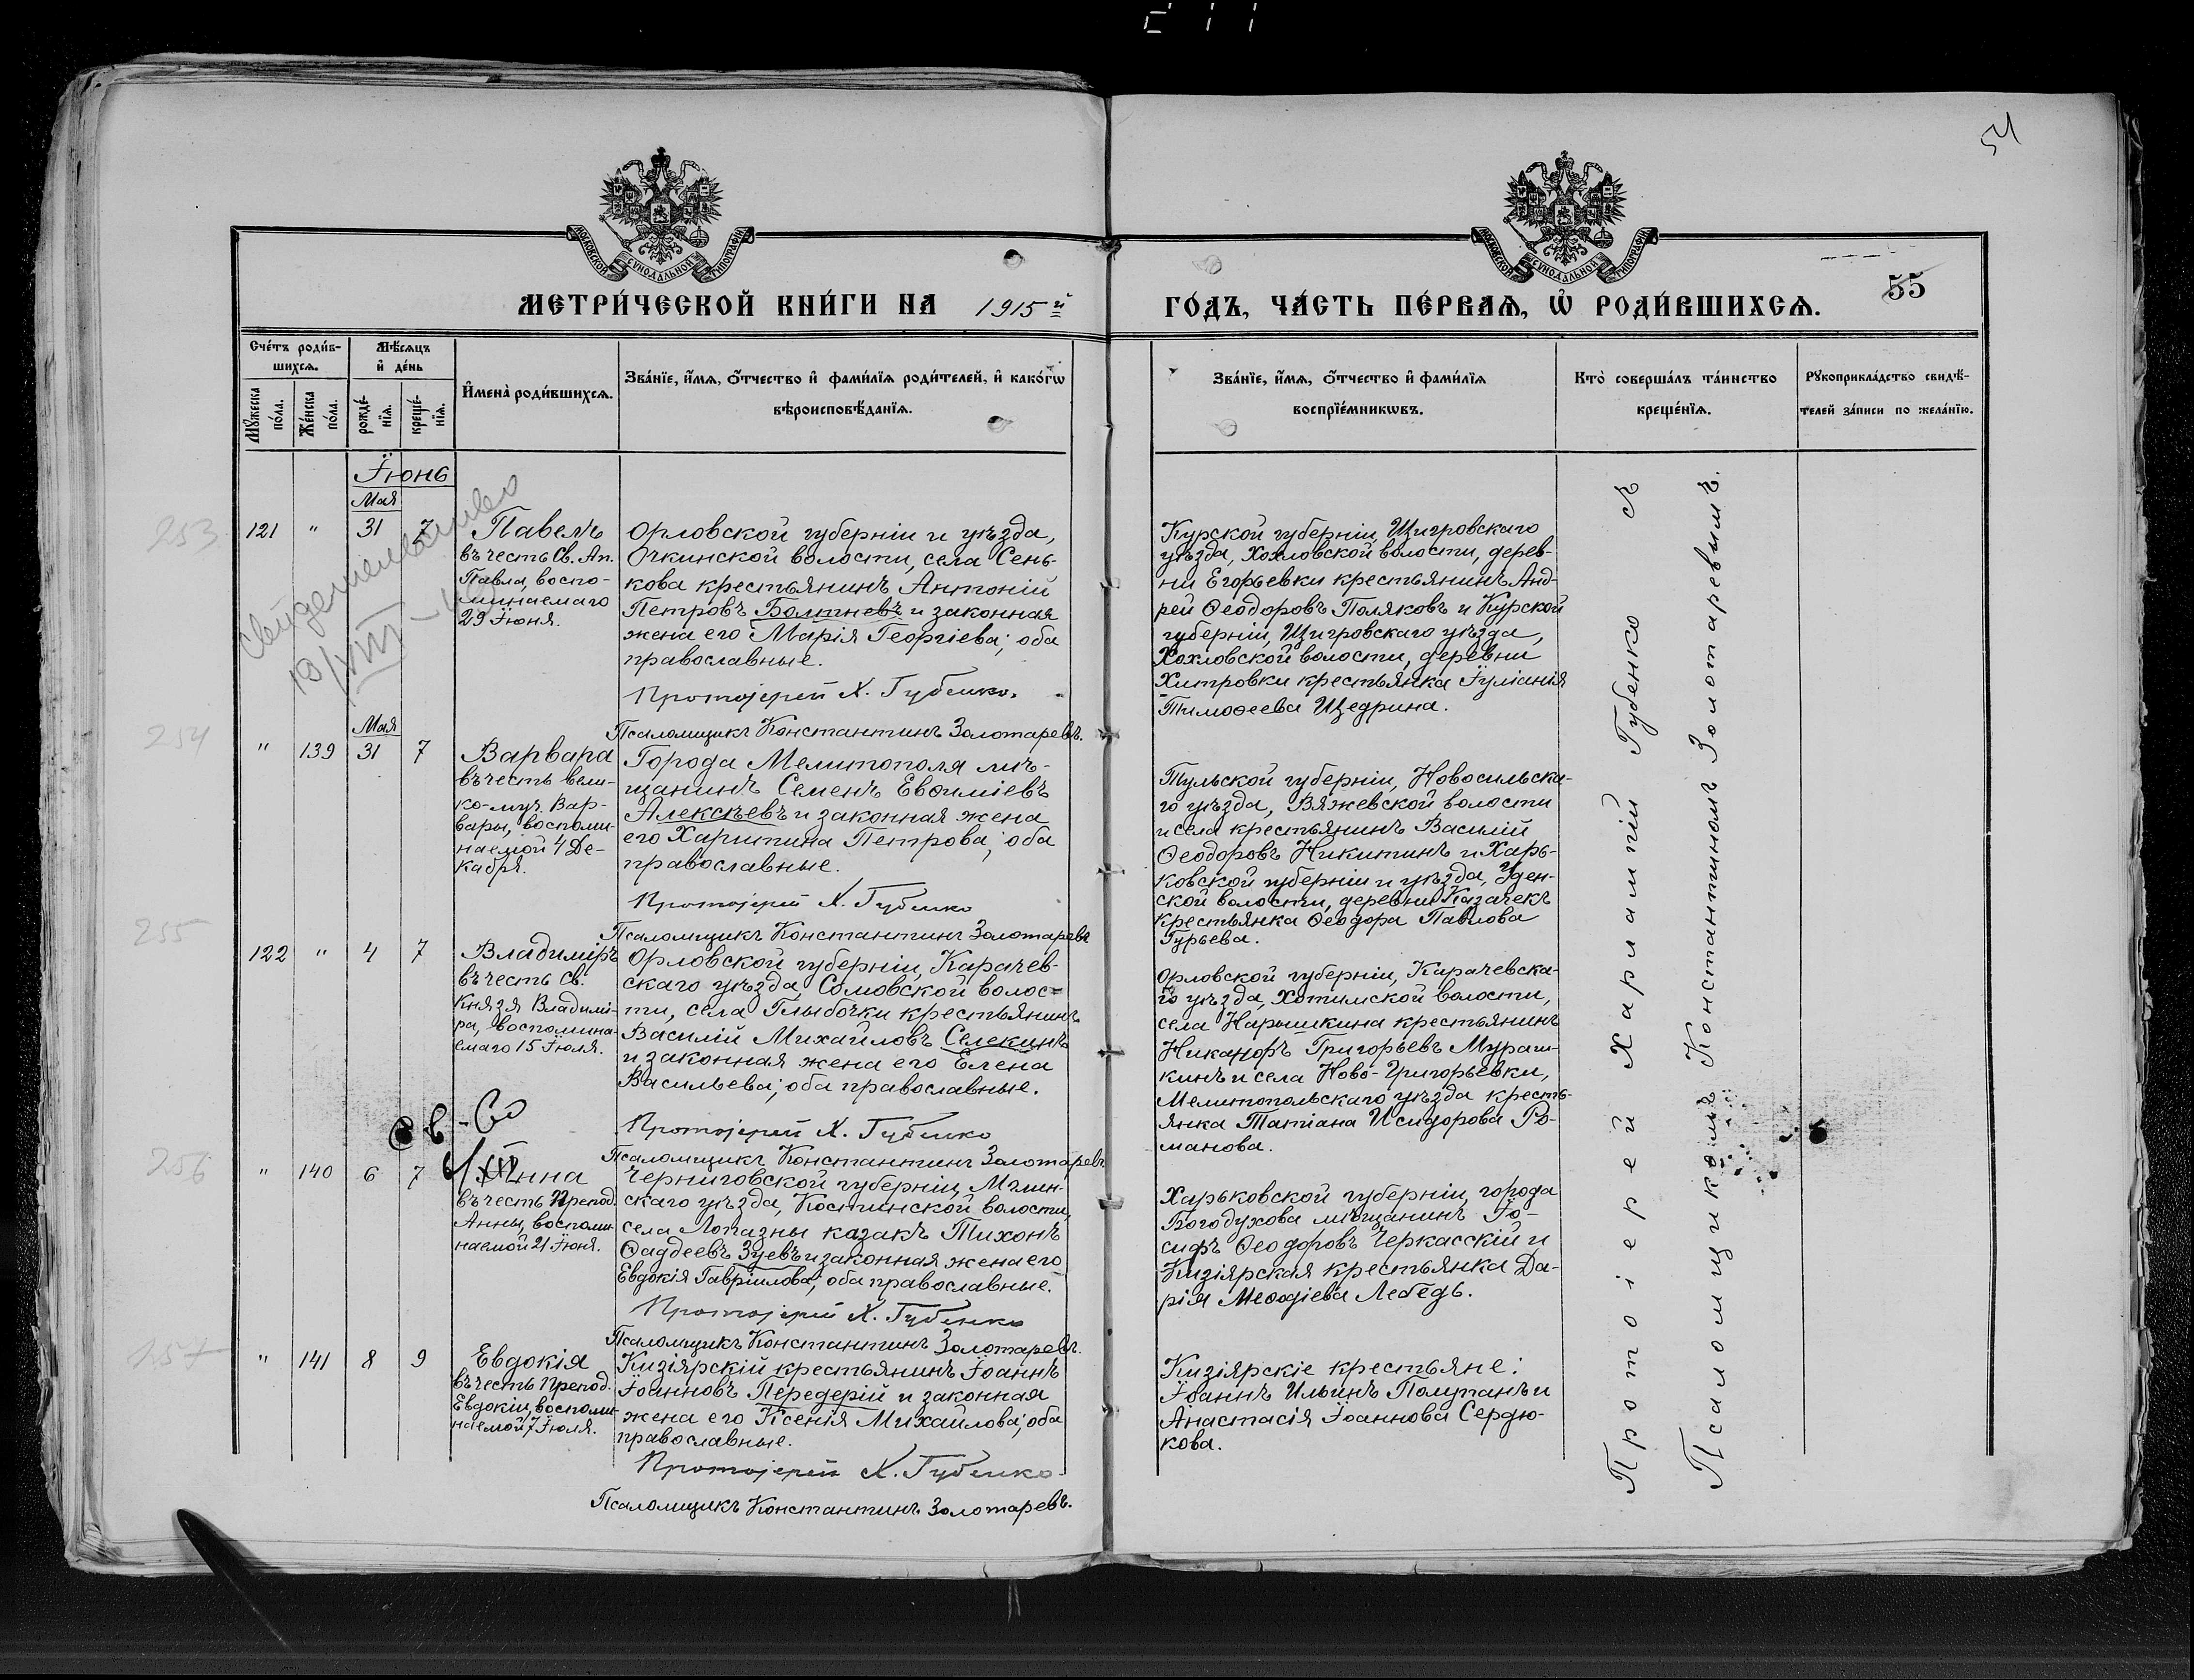 54
МОСКОВСКОЙ СѴНОДАЛЬНОЙ ТИПОГРАФІИ
МОСКОВСКОЙ СѴНОДАЛЬНОЙ ТИПОГРАФІИ
МЕТРИ́ЧЕСКОЙ КНИ́ГИ НА 1915 й
ГО́ДЪ, ЧА́СТЬ ПЕ́РВАѦ, Ѡ РОДИ́ВШИХСѦ.
55
Сче́тъ роди́в-
шихсѧ.
Мѣ́сѧцъ
и҆ де́нь
Мꙋ́жеска
по́ла.
Же́нска
по́ла.
рожде́-
нїѧ.
креще́-
нїѧ.
И҆мена̀ роди́вшихсѧ.
Зва́нїе, и҆́мѧ, ѻ҆́тчество и҆ фами́лїѧ роди́телей, и҆ како́гѡ
вѣроисповѣ́данїѧ.
Зва́нїе, и҆́мѧ, ѻ҆́тчество и҆ фами́лїѧ
воспрїе́мникѡвъ.
Кто̀ соверша́лъ та́инство
креще́нїѧ.
Рꙋкоприкла́дство свидѣ́-
телей за́писи по жела́нїю.
Іюнь
Мая
253
121 " 31 7
Павелъ
въ честь Св. Ап.
Павла, воспо-
минаемаго
29 Іюня.
Свидетельство
10/VIII
Орловской губерніи и уѣзда,
Очкинской волости, села Сень-
кова крестьянинъ Антоній
Петровъ Болтневъ и законная
жена его Марія Георгіева; оба
православные.
Протоіерей Х. Губенко.
Псаломщикъ Константинъ Золотаревъ.
Курской губерніи, Щигровскаго
уѣзда, Хохловской волости, дерев-
ни Егорьевки крестьянинъ Анд-
рей Ѳеодоровъ Поляковъ и Курской
губерніи, Щигровскаго уѣзда,
Хохловской волости, деревни
Хитровки крестьянка Іуліанія
Тимоѳеева Щедрина.
254
Мая
" 139 31 7
Варвара
въ честь вели-
ко-муч. Вар-
вары, воспоми-
наемой 4 Де-
кабря.
Города Мелитополя мѣ-
щанинъ Семенъ Евѳиміевъ
Алексѣевъ и законная жена
его Харитина Петрова; оба
православные.
Протоіерей Х. Губенко
Псаломщикъ Константинъ Золотаревъ
Тульской губерніи, Новосильска-
го уѣзда, Вяжевской волости
и села крестьянинъ Василій
Ѳеодоровъ Никитинъ и Харь-
ковской губерніи и уѣзда, Уден-
ской волости, деревни Казачекъ
крестьянка Ѳеодора Павлова
Гурьева.
255
122 " 4 7
Владиміръ
въ честь Св.
Князя Владимі-
ра, воспомина-
емаго 15 Іюля.
Орловской губерніи, Карачев-
скаго уѣзда, Сомовской волос-
ти, села Глыбочки крестьянинъ
Василій Михайловъ Селекинъ
и законная жена его Елена
Васильева; оба православные.
Протоіерей Х. Губенко
Псаломщикъ Константинъ Золотаревъ
Орловской губерніи, Карачевска-
го уѣзда, Хотимской волости,
села Нарышкина крестьянинъ
Никаноръ Григорьевъ Мураш-
кинъ и села Ново-Григорьевки,
Мелитопольскаго уѣзда кресть-
янка Татіана Исидорова Ро-
манова.
256
в-во
" 140 6 7
Анна
въ честь Препод.
Анны, воспоми-
наемой 21 Іюня.
Черниговской губерніи, Мглин-
скаго уѣзда, Костинской волости,
села Лопазны казакъ Тихонъ
Ѳаддеевъ Зуевъ и законная жена его
Евдокія Гавріилова; оба православные.
Протоіерей Х. Губенко
Псаломщикъ Константинъ Золотаревъ.
Харьковской губерніи, города
Богодухова мѣщанинъ Іо-
сифъ Ѳеодоровъ Черкасскій и
Кизіярская крестьянка Да-
рія Меѳодіева Лебедь.
157
" 141 8 9
Евдокія
въ честь Препод.
Евдокіи, воспоми-
наемой 7 Іюля.
Кизіярскій крестьянинъ Іоаннъ
Іоанновъ Передерій и законная
жена его Ксенія Михайлова; оба
православные.
Протоіерей Х. Губенко
Псаломщикъ Константинъ Золотаревъ.
Кизіярскіе крестьяне:
Іоаннъ Ильинъ Полтанъ и
Анастасія Іоаннова Сердю-
кова.
Протоіерей Харлампій Губенко съ
Псаломщикомъ Константиномъ Золотаревымъ.